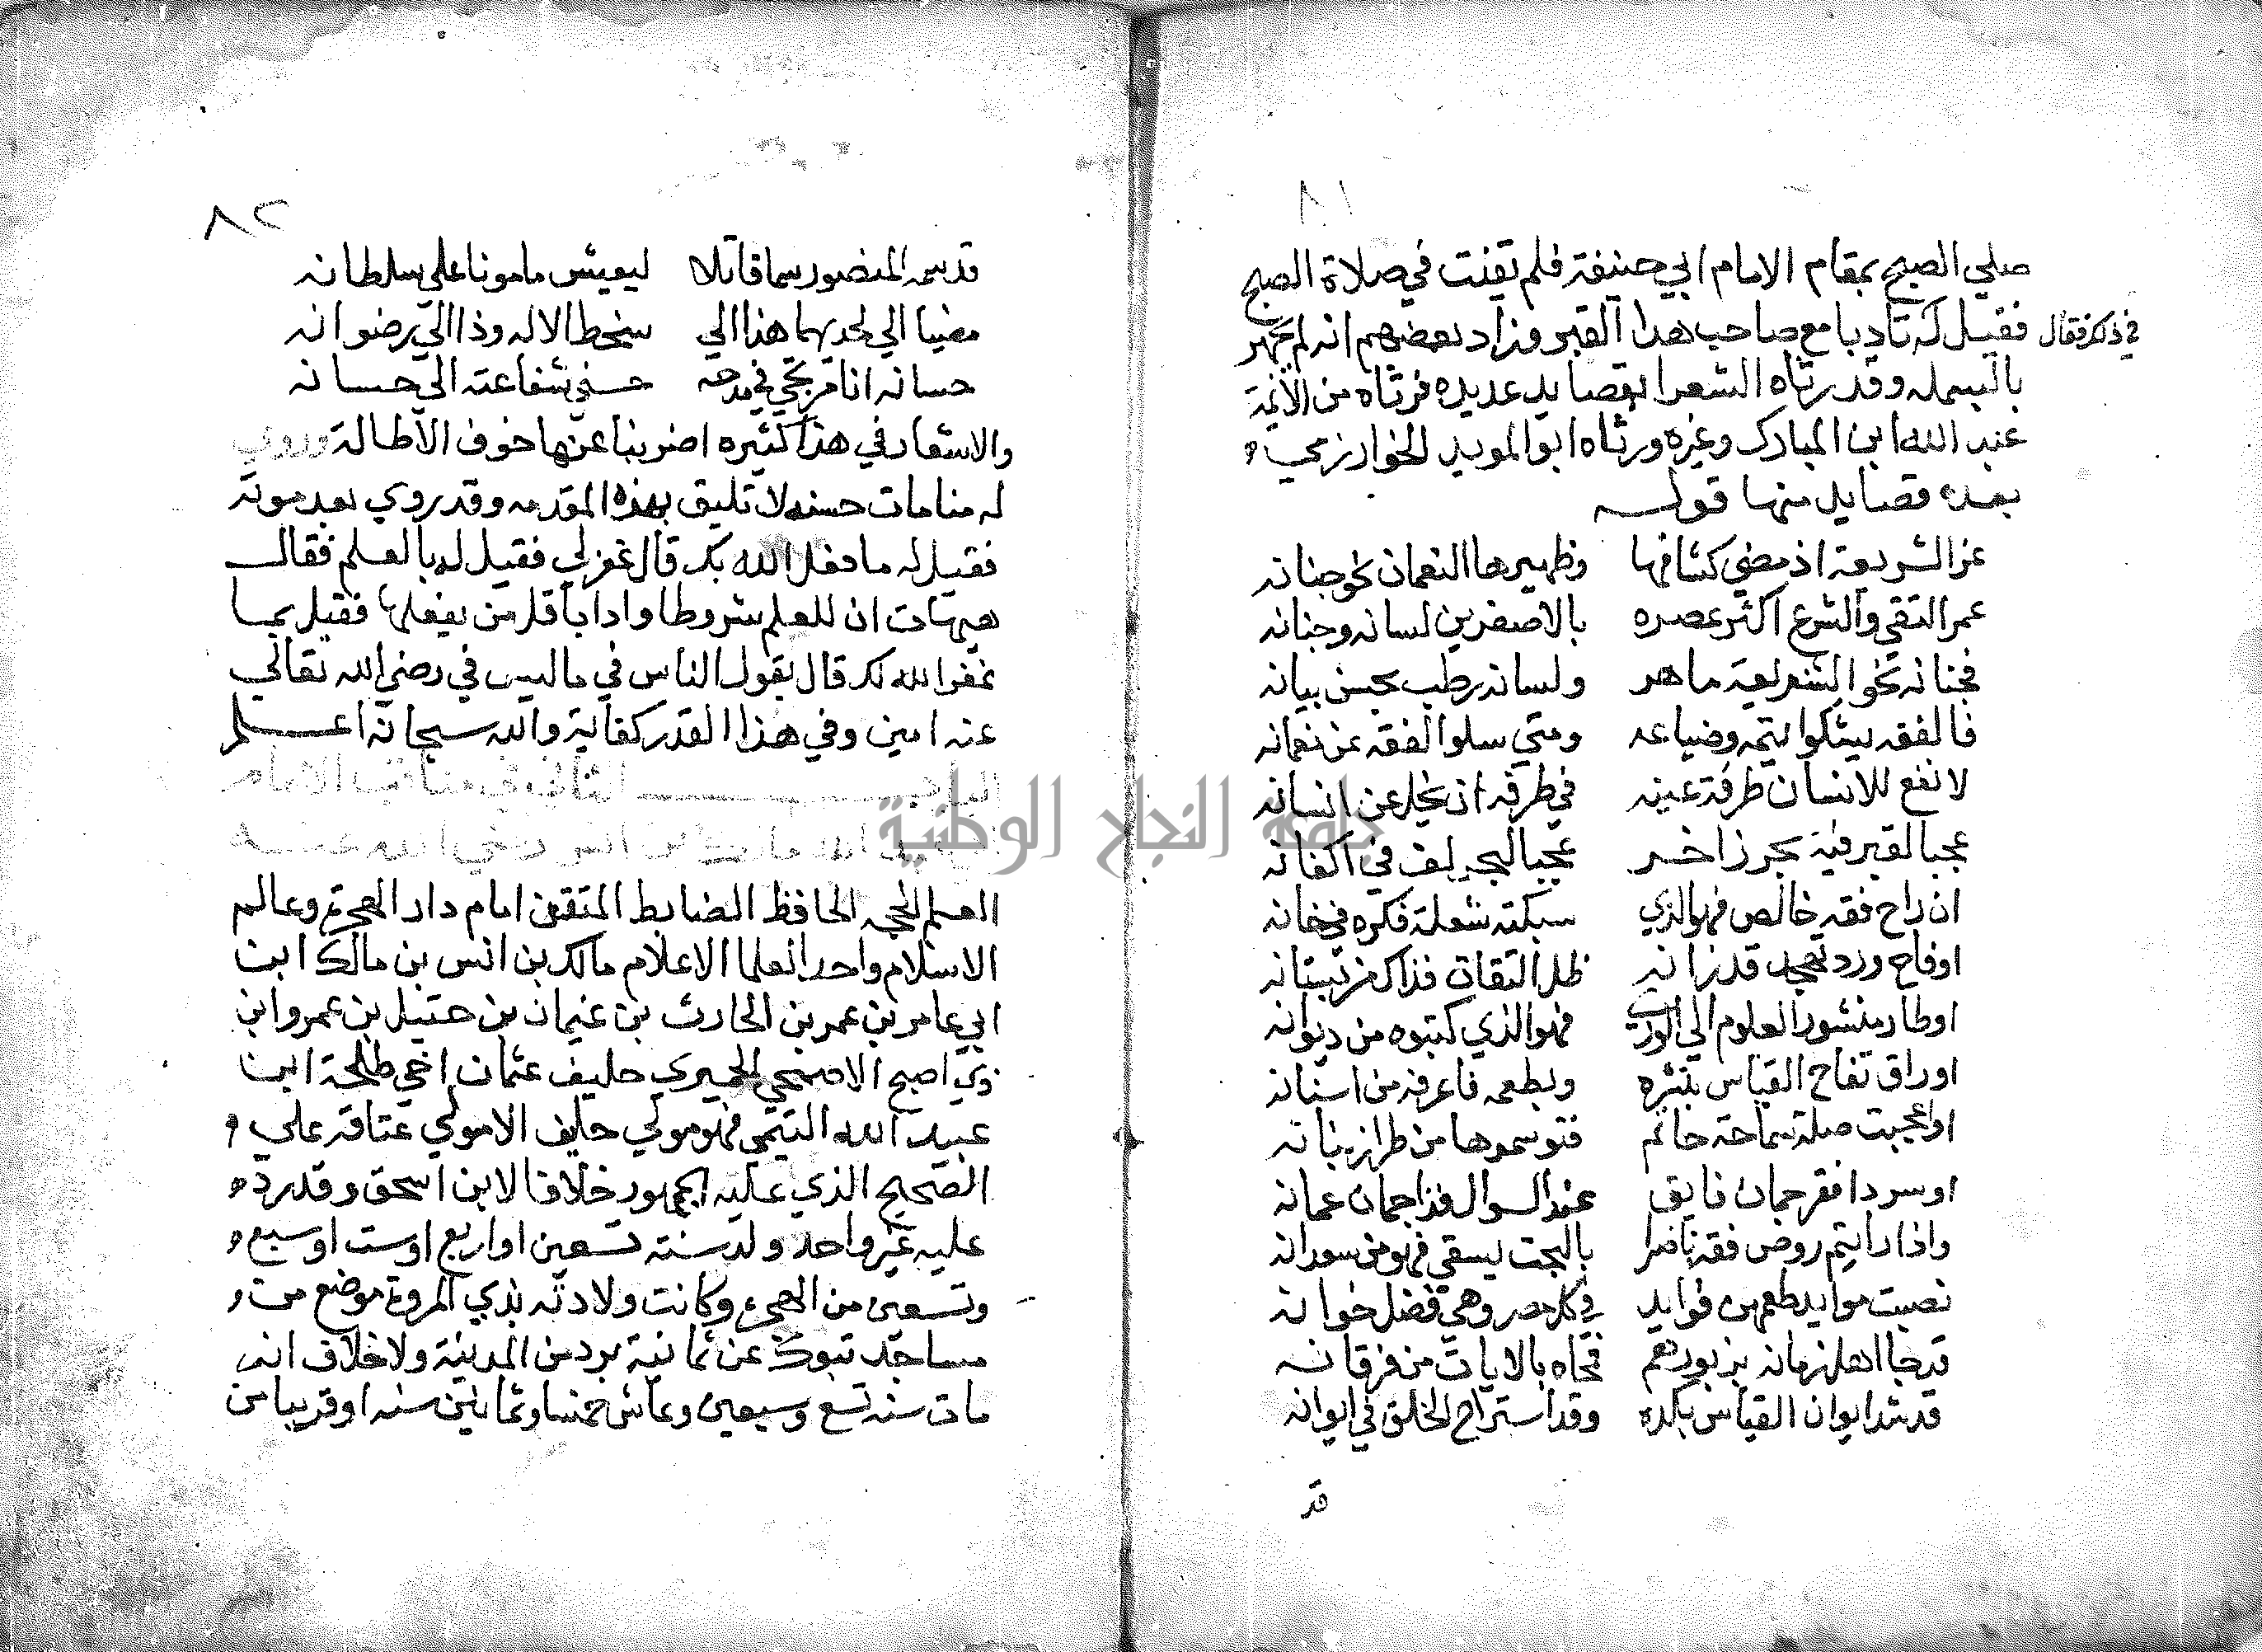 ٨١
صلي الصبح بمقام الامام ابي حنيفة فلم يقنت في صلاة الصبح
فقيل له تادبا مع صاحب هذا القبر وزاد بعضهم انه لم يجهر
في ذلك فقال
بالبسمله وقد رثاه الشعرا بقصايد عديده فرثاه من الائمة
عبد الله ابن المبارك وغيره ورثاه ابو الموید الخوارزمي
بعده قصايد منها قوله
عز الشريعة اذ مضي كشافها وظهيرها النعمان نحو جنانه
عمر التقي والشرع اكثر عصره بالاصغرين لسانه وجنانه
فجنانه نحو الشريعة ماهر ولسانه رطب بحسن بيانه
فالفقه يبتكوا يتمه وضياعه ومتي سلوا الفقه عن نعمانه
لا نفع للانسان طرفة عينه في طرفه اذ يخل عن انسانه
عجبا لقبر فيه بحر زاخر عجبا لبحر لف في اكفانه
ان راح فقه خالص فهو الذي سبكته شعلة فكره في خانه
اوفاح ورد تهجد قد زانه ظل التقات فذاك من بستانه
اوطار منشور العلوم الي الوري فهو الذي كتبوه من ديوانه
اوراق تفاح القياس بنثره وبطعمه فاعرفه من اسنانه
اواعجبت صلة سماحة حاتم فتوسموها من طراز بنانه
اوسر دا فقر جمان فايق عند السوال فذا جمان عمانه
واذا رايتم روض فقه ناضرا بالبحت يسقي فهو من سودانه
نصبت موايد طعمهن فوايد في كل مصر وهي فضل خوانه
قد جا اهل زمانه بزبورهم فجاه بالايات من فرقانه
قد شد ايوان القياس بكده وقد استراح الخلق في ايوانه
قد
٨٢
قد سمه المنصور سما قاتلا ليعيش مامونا علي سلطانه
مضيا الي لحديهما هذا الي سخط الاله وذا الي رضوانه
حسانه انا مرتجي في مدحه حسني شفاعته الي حسانه
والاشعار في هذا كثيره اضربنا عنها خوف الاطالة وروي
له منامات حسنه لا تليق بهذه المقدمه وقد روي بعد موته
فقيل له ما فعل الله بك قال غفر لي فقيل له بالعلم فقال
هيهات ان للعلم شروطا وادابا قل من يفعلها فقيل بما
غفر الله لك قال بقول الناس في ما ليس في رضي الله تعالي
عنه امين وفي هذا القدر كفاية والله سبحانه اعلم
الباب الثاني في مناقب الامام
عبد الله مالك بن انس رضي الله عنه
العلم الحجه الحافظ الضابط المتقن امام دار الهجرة وعالم
الاسلام واحد العلما الاعلام مالك بن انس بن مالك ابن
ابي عامر بن عمر بن الحارث بن غيمان بن حثيل بن عمرو ابن
ذي اصبح الاصبحي الحميري حليف عثمان اخي طلحة ابن
عبيد الله التيمي فهو مولي حليف الا مولي عتاقة علي
الصحيح الذي عليه الجمهور خلافا لابن اسحق وقد رد
عليه غير واحد ولد سنته تسعين او اربع او ست او سبع
وتسعين من الهجرة وكانت ولادته بذي المروة موضع من
مساجد تبوك عن ثمانية برد من المدينة ولا خلاف انه
مات سنه تسع وسبعين وعاش خمسا وثمانين سنه او قريبا من
جامعة النجاح الوطنية